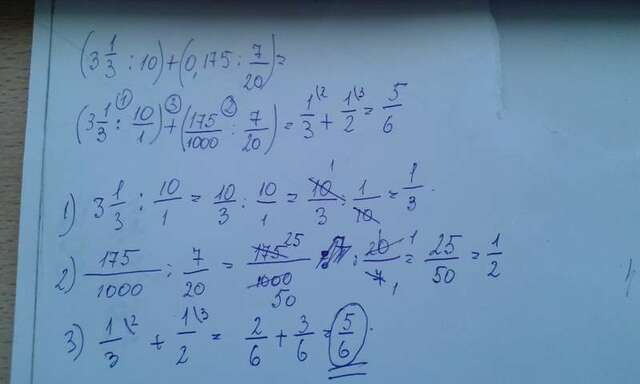 (3 1/3 : 10) + (0,175 : 7/20) =
(3 1/3 : 10/1) + (175/1000 : 7/20) = 1/3 + 1/2 = 5/6
1) 3 1/3 : 10/1 = 10/3 : 10/1 = 10/3 · 1/10 = 1/3.
2) 175/1000 : 7/20 = 175/1000 · 20/7 = 25/50 = 1/2
3) 1/3 + 1/2 = 2/6 + 3/6 = 5/6.